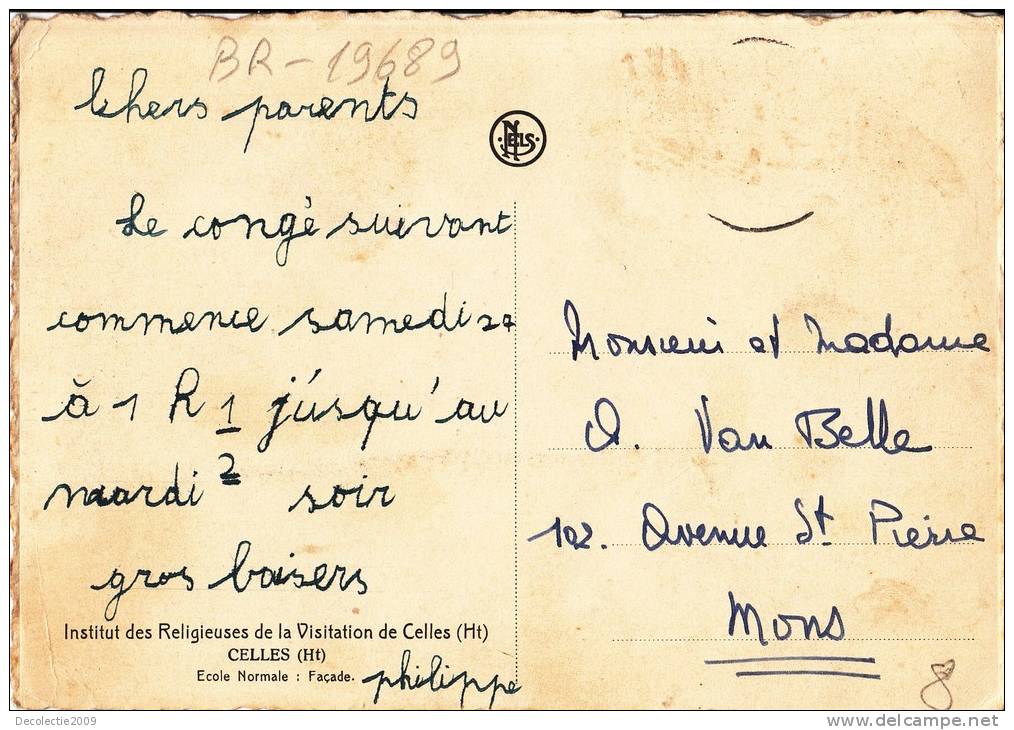 BR-19689
Chers parents
Le congé suivant
commence samedi 27
à 1 h 1/2 jusqu'au
mardi soir
gros baisers
philippe
NELS
Monsieur et Madame
A. Van Belle
102. Avenue St Pierre
Mons
8
Institut des Religieuses de la Visitation de Celles (Ht)
CELLES (Ht)
Ecole Normale : Façade.
Decolectie2009
www.delcampe.net